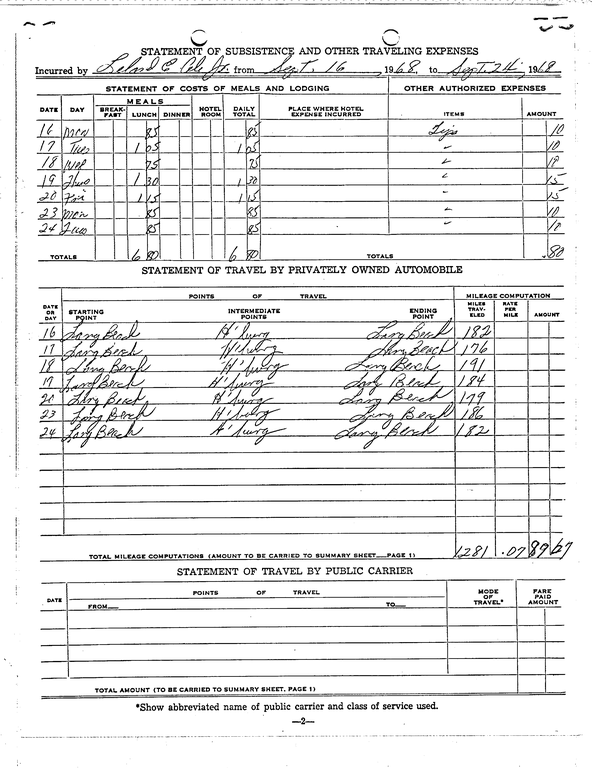 STATEMENT OF SUBSISTENCE AND OTHER TRAVELING EXPENSES
Incurred by Leland E. Jr. from Sept. 16 , 1968, to Sept. 24, 1968
STATEMENT OF COSTS OF MEALS AND LODGING OTHER AUTHORIZED EXPENSES
MEALS
DATE DAY BREAK-FAST LUNCH DINNER HOTEL ROOM DAILY TOTAL PLACE WHERE HOTEL EXPENSE INCURRED ITEMS AMOUNT
16 Mon 85 85 Tips 10
17 Tues 1 05 1 05 " 10
18 Wed 75 75 " 10
19 Thus 1 30 1 30 " 15
20 Fri 1 15 1 15 " 15
23 Mon 85 85 " 10
24 Tues 85 85 " 10
TOTALS 6 80 6 80 TOTALS .80
STATEMENT OF TRAVEL BY PRIVATELY OWNED AUTOMOBILE
POINTS OF TRAVEL MILEAGE COMPUTATION
DATE OR DAY STARTING POINT INTERMEDIATE POINTS ENDING POINT MILES TRAV-ELED RATE PER MILE AMOUNT
16 Long Beach H'burg Long Beach 182
17 Long Beach H'burg Long Beach 176
18 Long Beach H'burg Long Beach 191
19 Long Beach H'burg Long Beach 184
20 Long Beach H'burg Long Beach 179
23 Long Beach H'burg Long Beach 186
24 Long Beach H'burg Long Beach 182
TOTAL MILEAGE COMPUTATIONS (AMOUNT TO BE CARRIED TO SUMMARY SHEET—PAGE 1) 1281 .07 89 67
STATEMENT OF TRAVEL BY PUBLIC CARRIER
DATE POINTS OF TRAVEL MODE OF TRAVEL* FARE PAID AMOUNT
FROM— TO—
TOTAL AMOUNT (TO BE CARRIED TO SUMMARY SHEET, PAGE 1)
*Show abbreviated name of public carrier and class of service used.
—2—